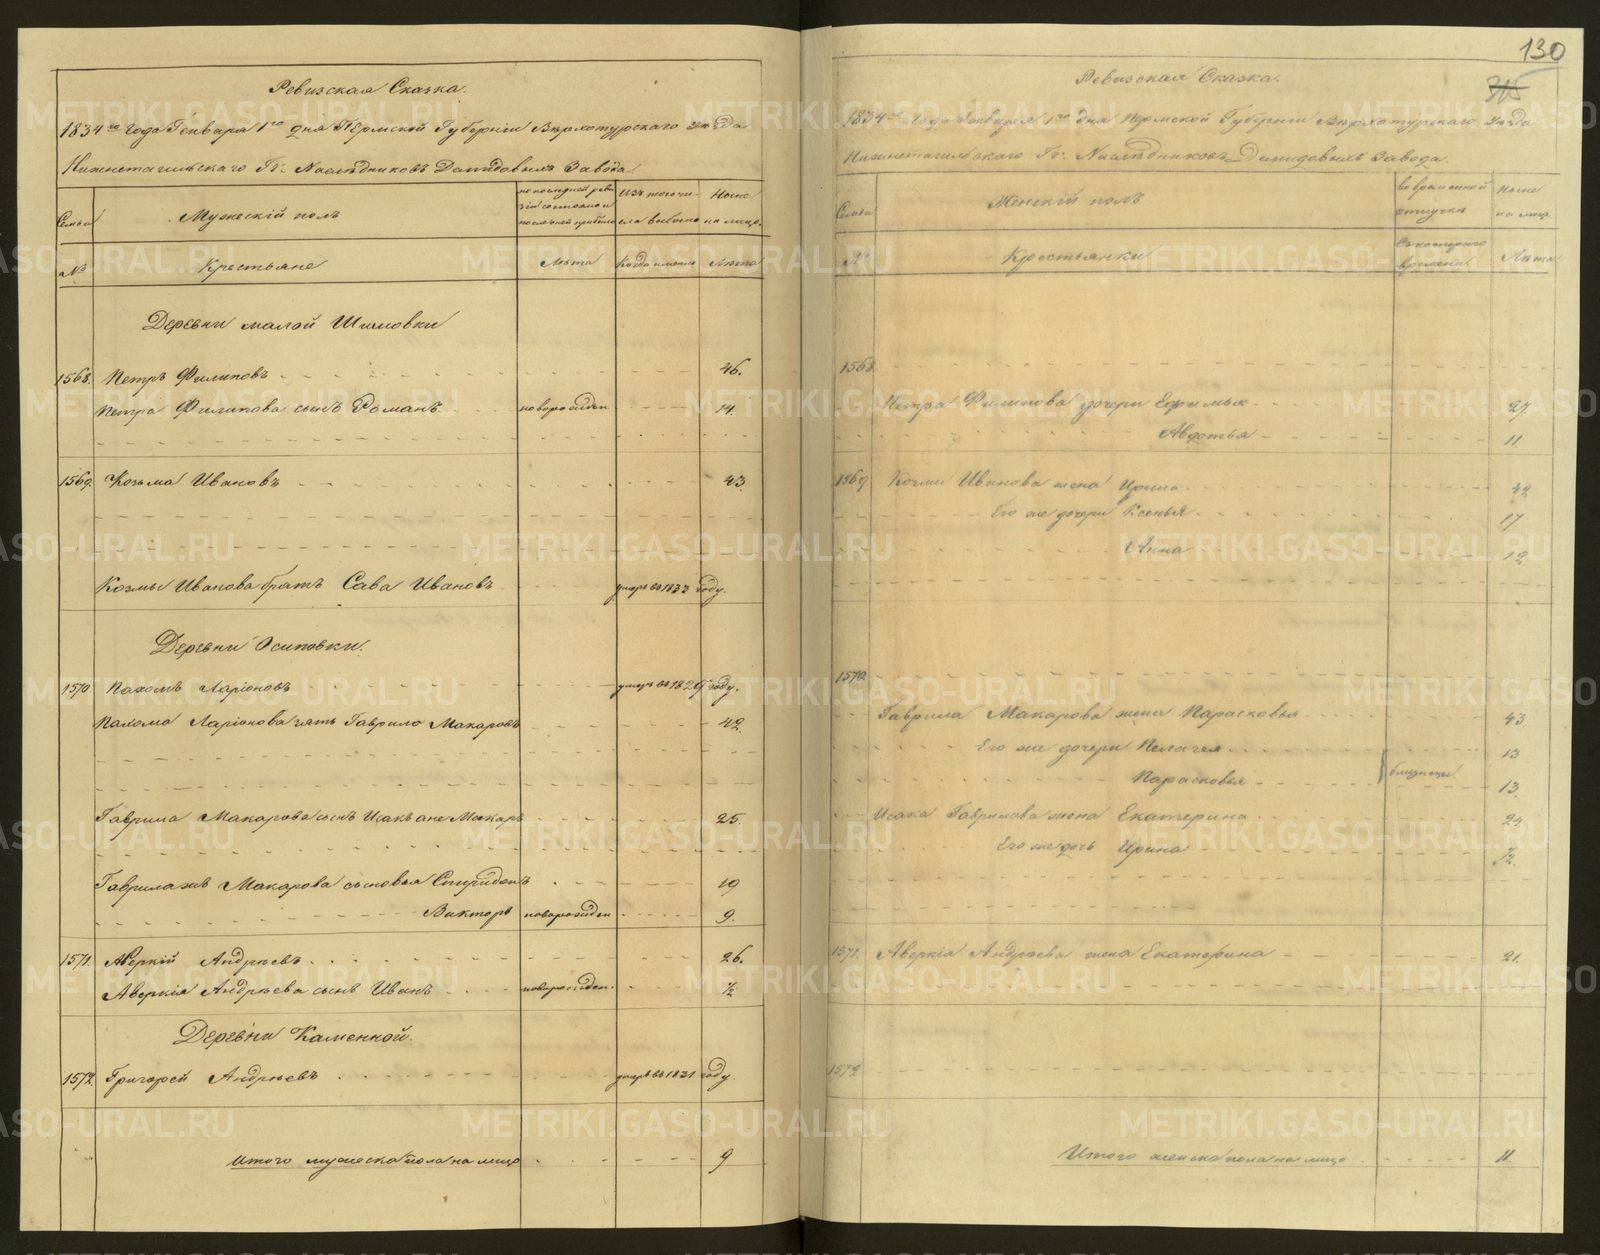 Ревизская Сказка.
1834го года Генваря 1го дня Пермской Губерніи Верхотурскаго уѣзда
Нижнетагильскаго Гг: Наслѣдниковъ Демидовыхъ Завода
Семьи
Мужескій полъ
по последней реви
зіи состояло и
послѣ ней прибыло
Изъ того чи-
сла выбыло
Ныне
на лицо.
№
Крестьяне
Лѣта
Когда имянно
Лѣта
Деревни малой Шиловки
1568. Петръ Филиповъ 46.
Петра Филипова сынъ Романъ новорожден 14.
1569. Козьма Ивановъ 43
Козмы Иванова братъ Сава Ивановъ умеръ въ 1833 году.
Деревни Осиповки.
1570. Пахомъ Ларіоновъ умеръ въ 1829 году.
Пахома Ларіонова зять Гаврило Макаровъ 42.
Гаврила Макарова сынъ Исакъ ане Макаръ 25.
Гаврила жъ Макарова сыновья Спиридонъ 19
Викторъ новорожден 9.
1571. Аверкій Андрѣевъ 26.
Аверкія Андрѣева сынъ Иванъ новорожден. ½
Деревни Каменной.
1572. Григорей Андрѣевъ умеръ въ 1831 году.
Итого мужеска пола на лицо 9
130
Ревизская Сказка.
1834го года Генваря 1го дня Пермской Губерніи Верхотурскаго уѣзда
Нижнетагильскаго Гг: Наслѣдниковъ Демидовыхъ Завода.
Семьи
Женскій полъ
во временной
отлучкѣ
Ныне
на лицо.
№
Крестьянки
Съ котораго
времени
Лѣта
1568
Петра Филипова дочери Ефимья 27.
Авдотья 11
1569 Козмы Иванова жена Ирина 42
Его же дочери Ксенья 17
Анна 12
1570.
Гаврила Макарова жена Парасковья 43
Его же дочери Пелагея 13
Парасковья близнецы 13.
Исака Гаврилова жена Екатерина 24
Его же дочь Ирина ½.
1571. Аверкія Андрѣева жена Екатерина 21.
1572
Итого женска пола на лицо 11.
METRIKI.GASO-URAL.RU